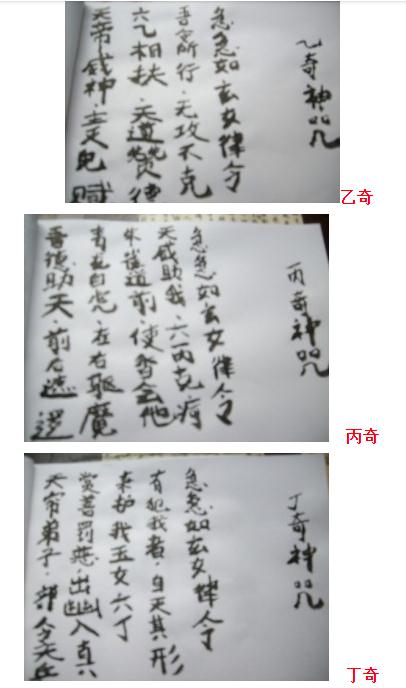 乙奇神咒
天帝威神·
六乙相扶·天道赞德
吾今所行·无攻不克
急急如玄女律令
乙奇
丙奇神咒
吾德助天·前后遮逻
青龙白虎·左右驱魔
朱雀道前·使吾会他
天威助我·六丙克
急急如玄女律令
丙奇
丁奇神咒
天帝弟子·部令天兵
赏善罚恶·出幽入真
来护我玉女六丁
有犯我者·自灭其形
急急如玄女律令
丁奇